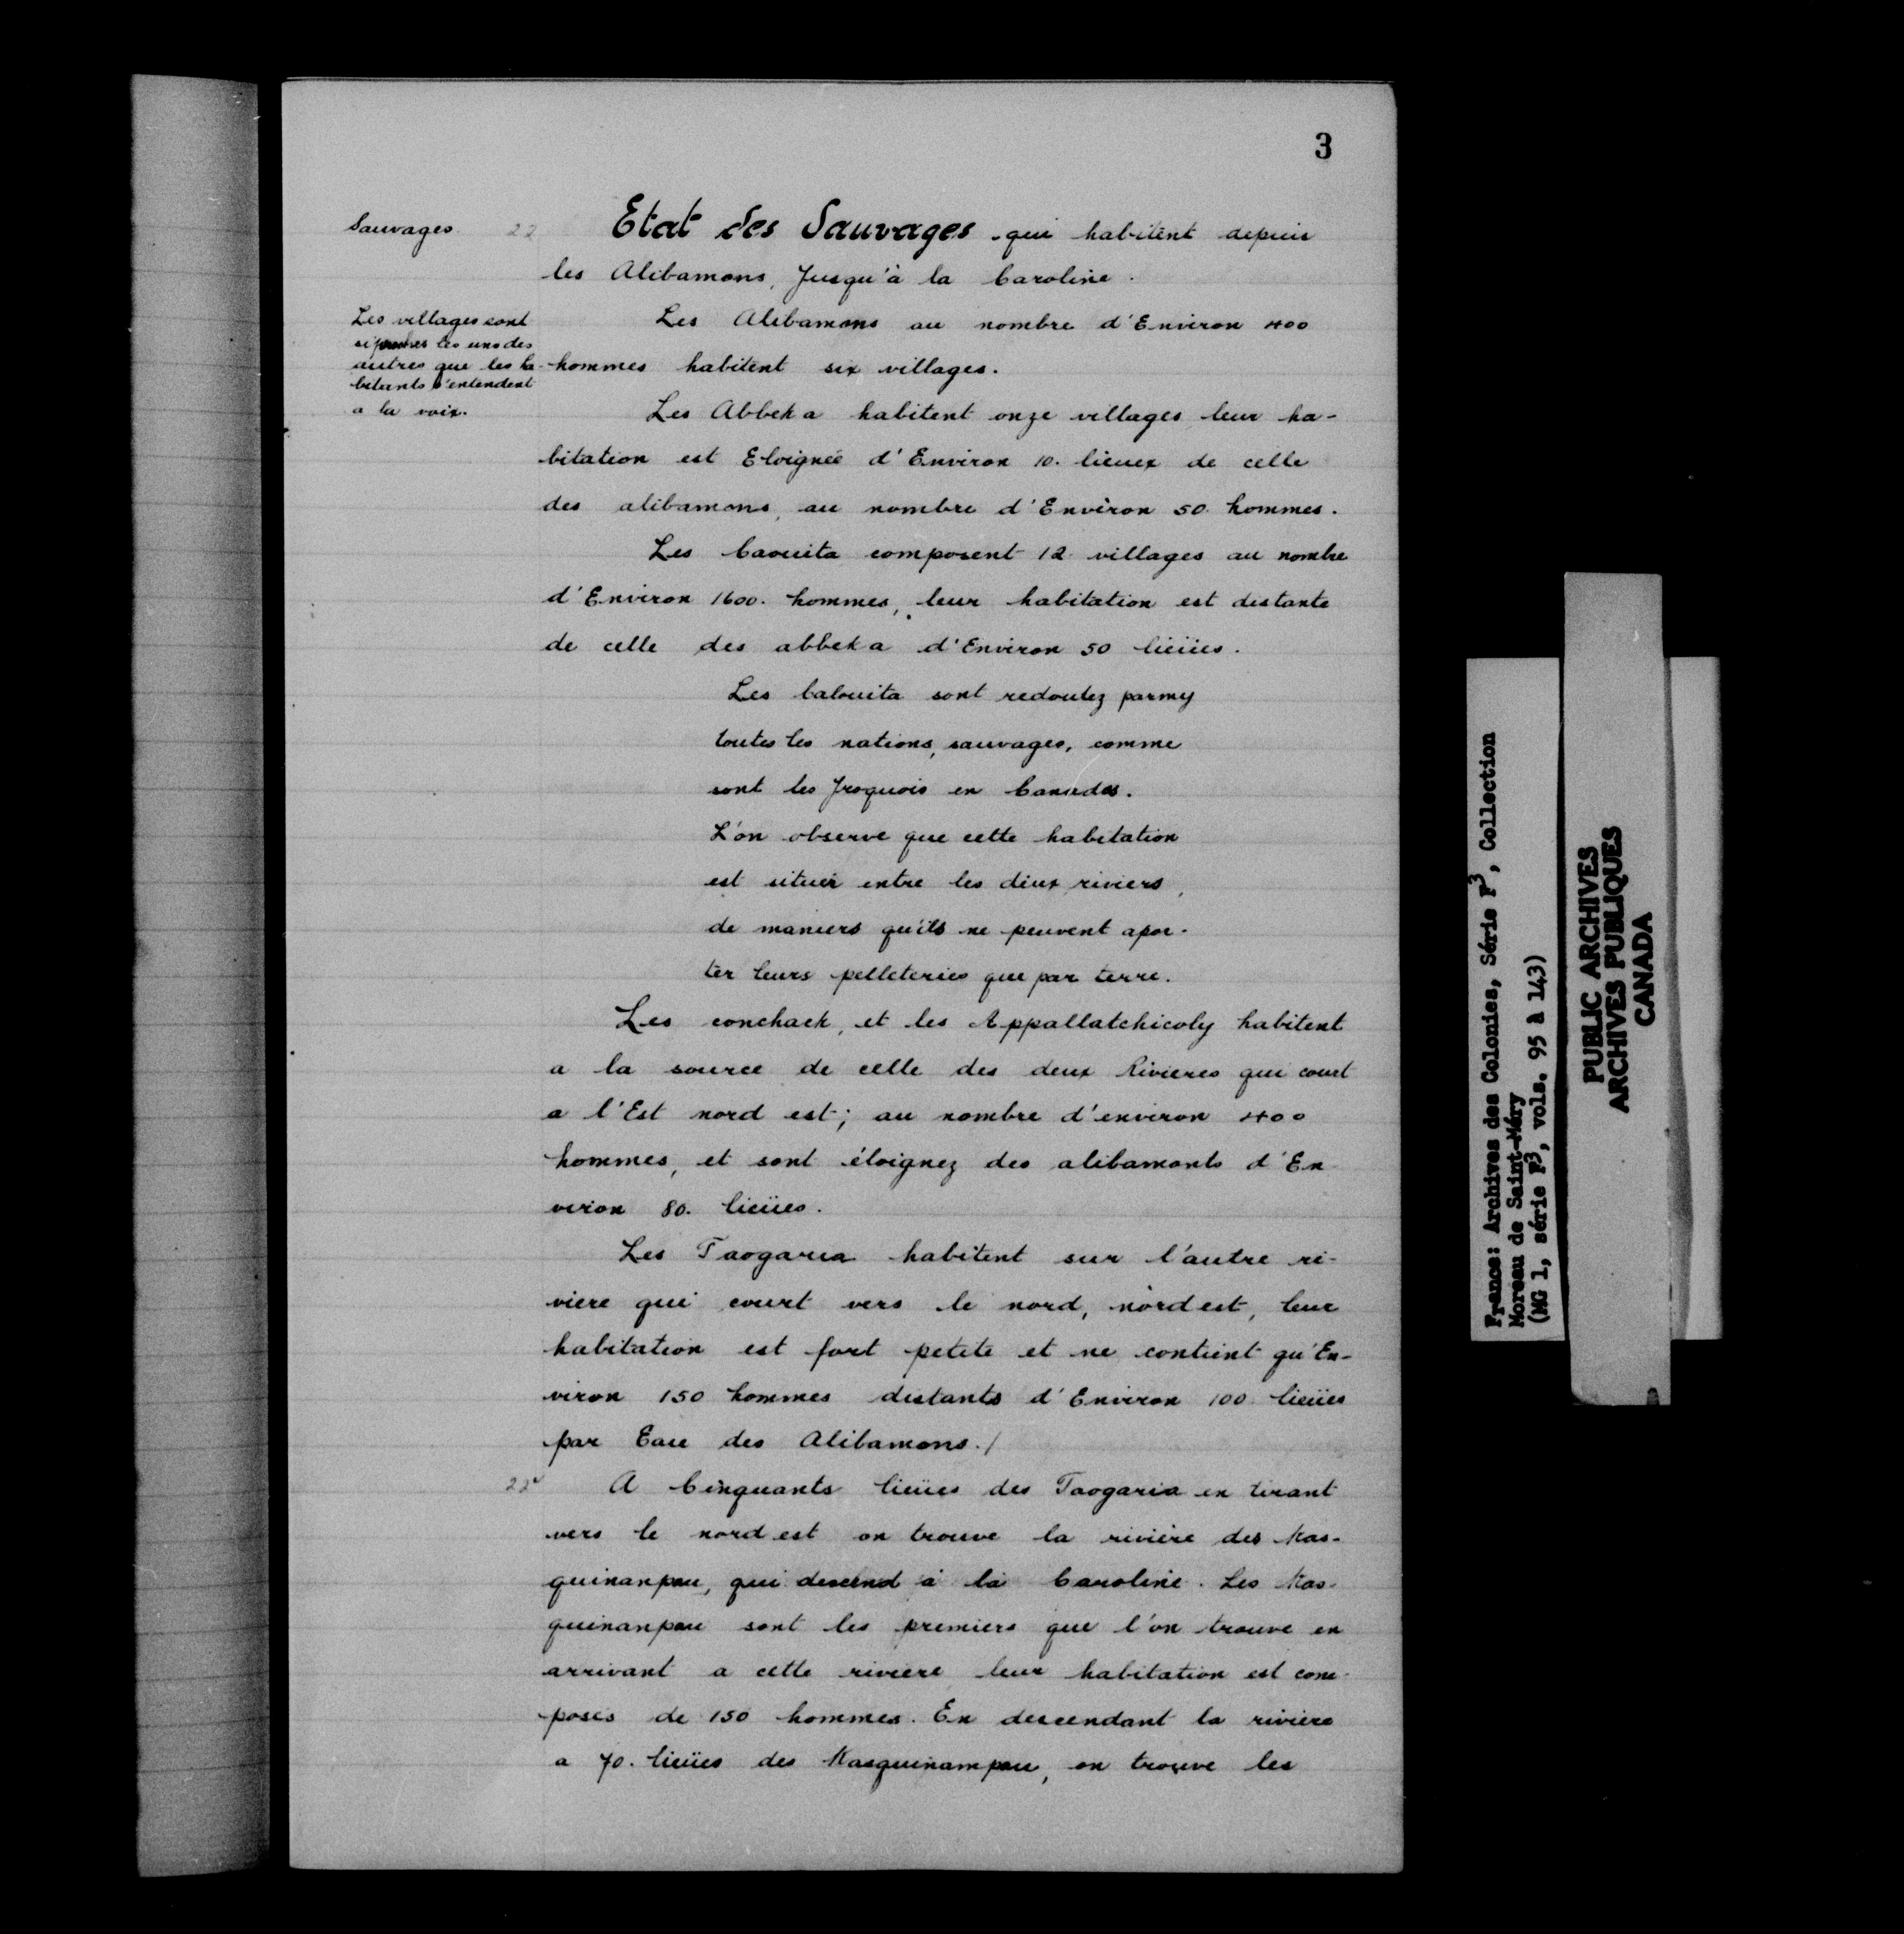 3
Sauvages 22 Etat des Sauvages qui habitent depuis
les Alibamons, Jusqu'à la Caroline.
Les villages sont
si proches les uns des
autres que les ha-
bitants s'entendent
a la voix.
Les Alibamons au nombre d'Environ 400
hommes habitent six villages.
Les Abbeka habitent onze villages leur ha-
bitation est Eloignée d'Environ 10. lieuex de celle
des alibamons, au nombre d'Environ 50 hommes.
Les Caouita composent 12 villages au nombre
d'Environ 1600. hommes, leur habitation est distante
de celle des abbeka d'Environ 50 lieües.
Les Calouita sont redoutez parmy
toutes les nations, sauvages, comme
sont les Jroquois en Canadas.
L'on observe que cette habitation
est située entre les deux riviers,
de maniers qu'ils ne peuvent apor-
ter leurs pelleteries que par terre.
Les conchack, et les Appallatchicoly habitent
a la source de celle des deux Rivieres qui court
a l'Est nord est; au nombre d'environ 400
hommes, et sont éloignez des alibamonts d'En
viron 80. lieües.
Les Taogaria habitent sur l'autre ri-
viere qui court vers le nord, nord est, leur
habitation est fort petite et ne contient qu'En-
viron 150 hommes distants d'Environ 100 lieües
par Eau des Alibamons./
22v A Cinquants lieües des Taogaria en tirant
vers le nord est on trouve la rivière des Kas-
quinanpau, qui descend à la Caroline. Les Kas-
quinanpau sont les premiers que l'on trouve en
arrivant a cette riviere leur habitation est com-
posés de 150 hommes. En descendant la riviere
a 70. lieües des Kasquinampau, on trouve les
France: Archives des Colonies, Série F3, Collection
Moreau de Saint-Méry
(MG 1, série F3, vols. 95 à 143)
PUBLIC ARCHIVES
ARCHIVES PUBLIQUES
CANADA